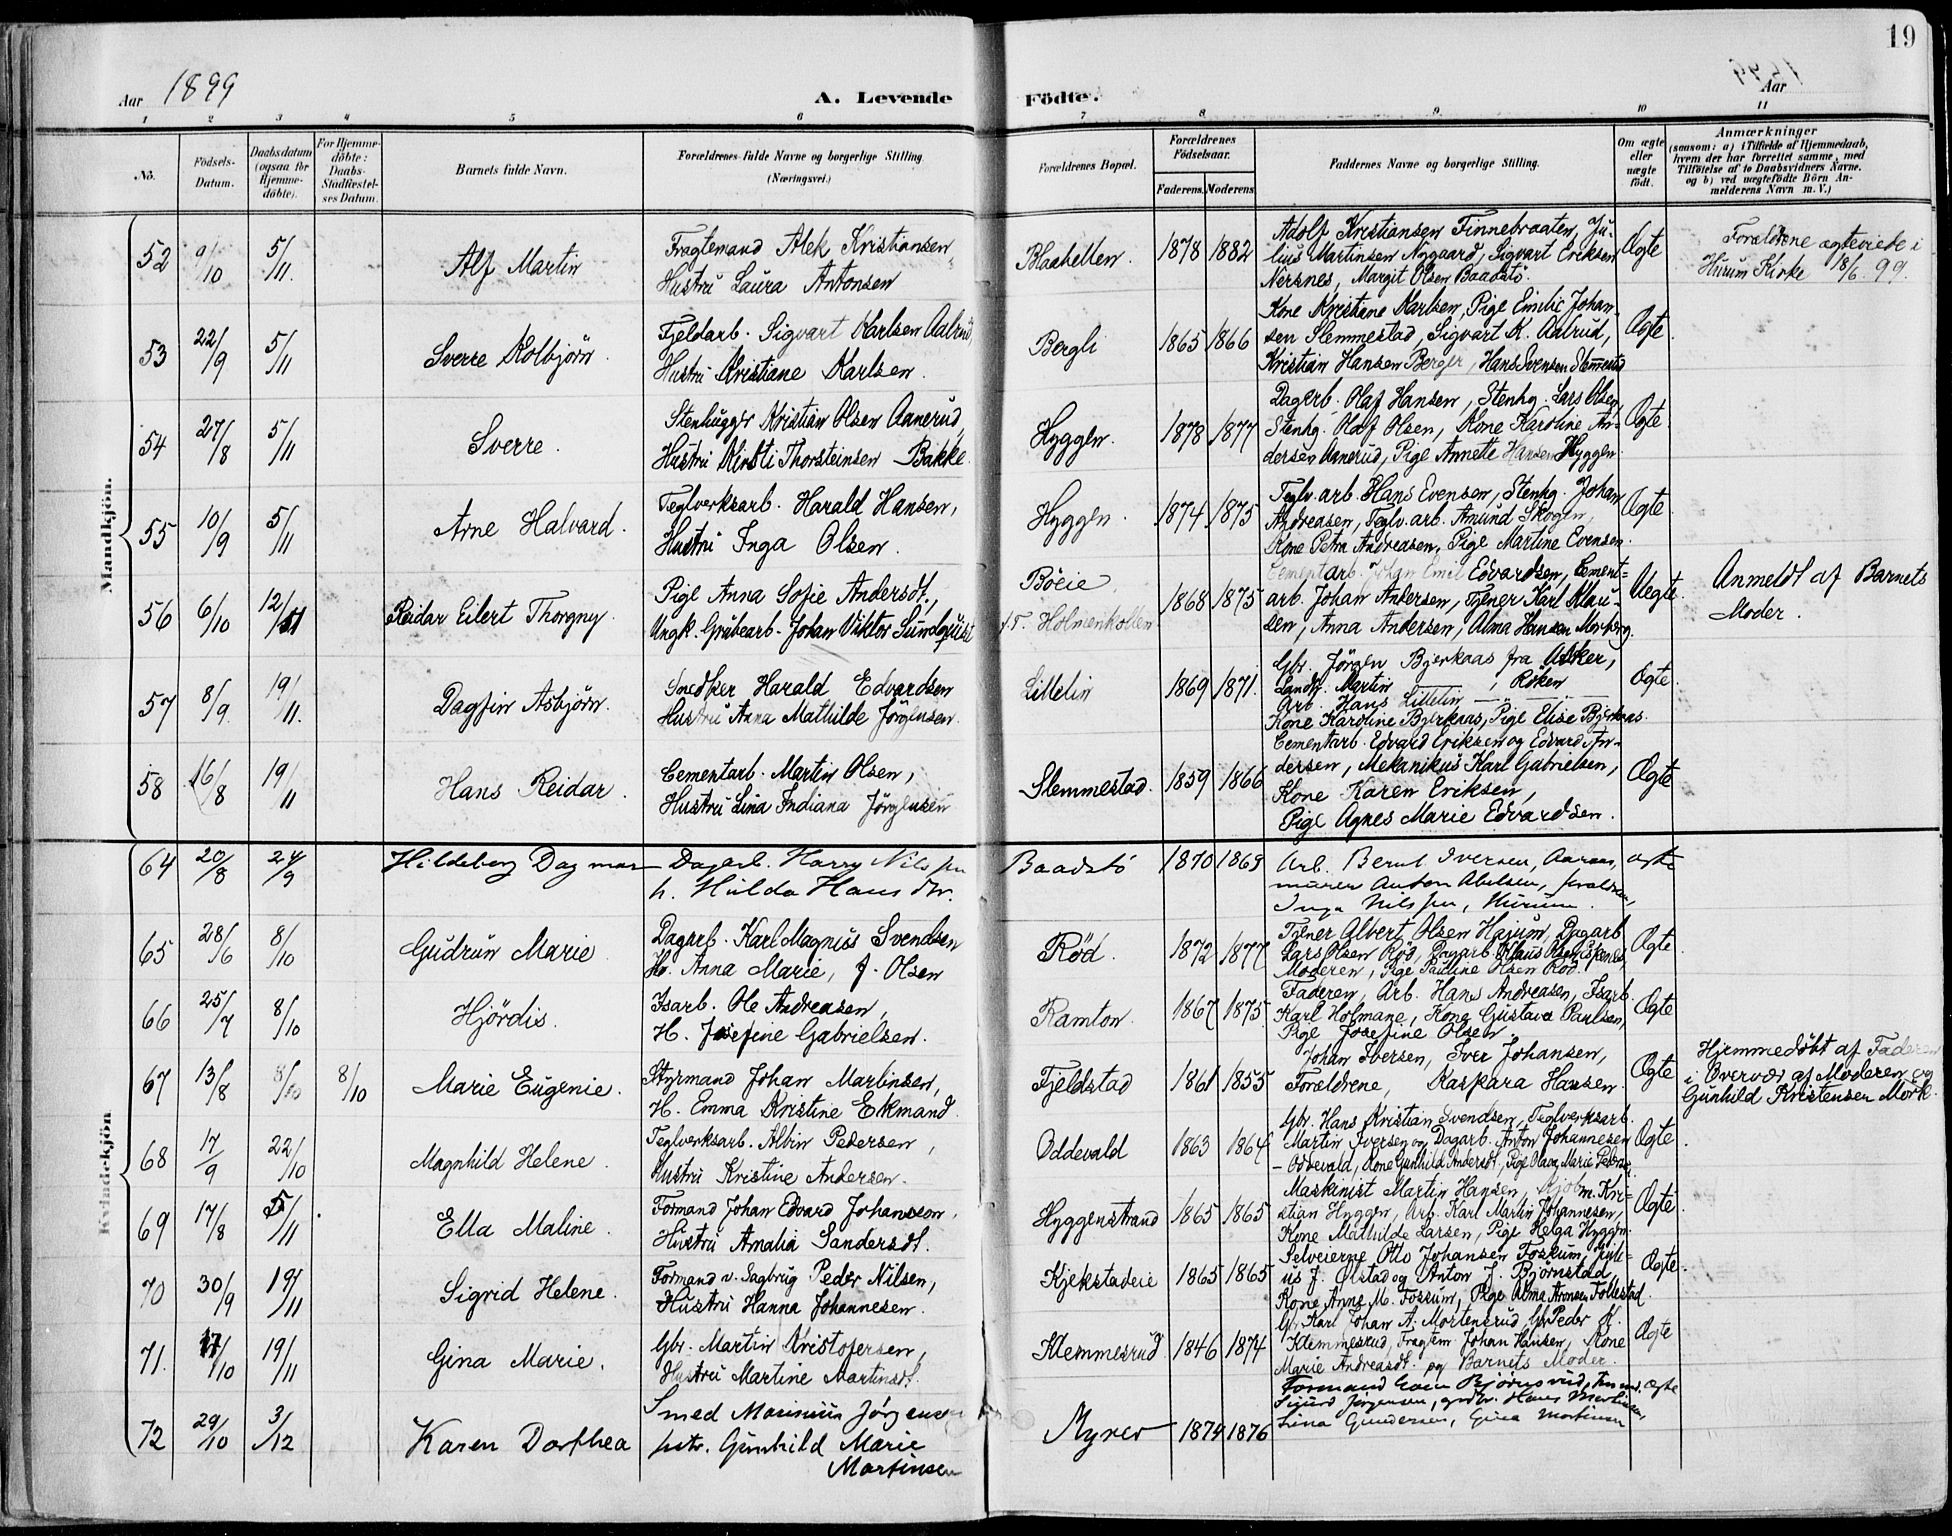 19
Aar 1899
A. Levende Födte.
Aar
1 2 3 4 5 6 7 8 9 10 11
No.
Födsels-Datum.
Daabsdatum (ogsaa for Hjemmedöbte).
For Hjemmedöbte: Daabs-Stadfæstelses Datum.
Barnets fulde Navn.
Forældrenes fulde Navne og borgerlige Stilling.
(Næringsvei.)
Forældrenes Bopæl.
Forældrenes Födselsaar.
Faderens. Moderens
Faddernes Navne og borgerlige Stilling.
Om ægte eller uægte födt.
Anmærkninger
(saasom: a) i Tilfælde af Hjemmedaab, hvem der har forrettet samme, med Tilföielse af to Daabsvidners Navne. og b) ved uægtefödte Börn Anmelderens Navn m. V.)
Mandkjön.
52 9/10 5/11. Alf Martin
Fragtemand Alek Kristiansen
Hustru Laura Antonsen
Blaahellen. 1878 1882
Adolf Kristiansen Finnebraaten, Ju-
lius Martinsen Nygaard, Sigvart Eriksen
Nersnes, Margit Olsen Baadstö.
Ægte
Forældrene ægteviede i
Hurum Kirke 18/6. 99.
53 22/9 5/11 Sverre Kolbjörn.
Fjeldarb. Sigvart Karlsen Aalrud,
Hustru Kristiane Karlsen.
Bergli 1865 1866
Kone Kristiane Karlsen, Pige Emilie Johan-
sen Slemmestad, Sigvart K. Aalrud,
Kristian Hansen Berger, Hans Svensen Slemmestad
Ægte
54 27/8 5/11 Sverre.
Stenhugger Kristian Olsen Aanerud,
Hustru Kirsti Thorsteinsen Bakke.
Hyggen. 1878 1877
Dagarb. Olaf Hansen, Stenhg. Lars Olsen,
Stenhg. Olaf Olsen, Kone Karoline An-
dersen Aanerud, Pige Annette Hansen Hyggen
Ægte.
55 10/9 5/11 Arne Halvard.
Teglverksarb. Harald Hansen,
Hustru Inga Olsen.
Hyggen. 1874 1875
Teglv. arb. Hans Evensen, Stenhg. Johan
Andreasen, Teglv. arb. Amund Skogen,
Kone Petra Andreasen, Pige Martine Evensen.
Ægte.
56 6/10 12/11 Reidar Eilert Thorgny.
Pige Anna Sofie Andersdt.,
Ungk. Grubearb. Johan Viktor Sundquist
Böeie,
f. T. Holmenkollen 1868 1875
Cementarb. Johan Emil Edvardsen, Cement-
arb. Johan Andersen, Tjener Karl Klau-
sen, Anna Andersen, Alma Hansen Morberg.
Uegte.
Anmeldt af Barnets
Moder.
57 8/9. 19/11. Dagfin Asbjörn.
Snedker Harald Edvardsen
Hustru Anna Mathilde Jörgensen.
Lillelin 1869 1871.
Gbr. Jörgen Bjerkaas fra Asker,
Landh. Martin — , Röken
Arb. Hans Lillelin — —
Kone Karoline Bjerkaas, Pige Elise Bjerkaas.
Ægte.
58 16/8 19/11 Hans Reidar.
Cementarb. Martin Olsen,
Hustru Lina Indiana Jörgensen
Slemmestad. 1859 1866
Cementarb. Edvard Eriksen og Edvard An-
dersen, Mekanikus Karl Gabrielsen,
Kone Karen Eriksen,
Pige Agnes Marie Edvardsen.
Ægte
Kvindekjön
64 20/8 24/9 Hildeborg Dagmar
Dagarb. Harry Nilssen
h. Hulda Hansdtr.
Baadstö 1870 1869
Arb. Bernt Iversen, Aaraas,
murer Anton Abelsen, forældrene,
Inga Nilssen, Hurum.
ægte
65 28/6 8/10 Gudrun Marie.
Dagarb. Karl Magnus Svendsen
Hu. Anna Marie, f. Olsen
Röd. 1872 1877
Tjener Albert Olsen Hajum, Dagarb
Lars Olsen Röd, Dagarb. Klaus Olsen
Moderen, Pige Pauline Olsen Röd.
Ægte.
66 25/7 8/10 Hjördis.
Isarb. Ole Andreasen,
H. Josefine Gabrielsen.
Ramton. 1867 1875.
Faderen, Arb. Hans Andreasen, Isarb.
Karl Holmane, Kone Gustava Paulsen,
Pige Josefine Olsen.
Ægte
67 13/8 8/10 8/10 Marie Eugenie.
Styrmand Johan Martinsen,
H. Emma Kristine Ekmand.
Fjeldstad 1861 1855
Johan Iversen, Iver Johansen,
Forældrene, Kaspara Hansen.
Ægte
Hjemmedöbt af Faderen
i Overvær af Moderen og
Gunhild Kristensen Mörk.
68 17/9 22/10 Magnhild Helene.
Teglverksarb. Albin Pedersen,
Hustru Kristine Andersen.
Oddevald 1863 1864
Gbr. Hans Kristian Svendsen, Teglverksarb.
Martin Iversen og Dagarb. Anton Johannesen
- Oddevald, Kone Gunhild Andersdt, Pige Olava Marie Peders.
Ægte.
69 17/8 5/11 Ella Maline.
Formand Johan Edvard Johansson,
Hustru Amalia Sandersdt.
Hyggenstrand 1865 1865
Maskinist Martin Hansen, Kjöbm. Kri-
stian Hyggen, Arb. Karl Martin Johannesen,
Kone Mathilde Larsen, Pige Helga Hyggen.
Ægte.
70 30/9 19/11 Sigrid Helene.
Formand v. Sagbrug Peder Nilsen,
Hustru Hanna Johannesen.
Kjekstadeie 1865 1865
Selveierne Otto Johansen Foskum, Juli-
us J. Ölstad og Anton J. Björnstad,
Kone Anne M. Fossum, Pige Alma Aronsen Follestad.
Ægte.
71. 17/10 19/11 Gina Marie.
Gbr. Martin Kristofersen,
Hustru Martine Martinsdt.
Klemmesrud. 1846 1874
Gbr. Karl Johan A. Mortensrud, Gbr. Peder M.
Klemmesrud, Fragtem. Johan Hansen, Kone
Marie Andreasdt. og Barnets Moder.
Ægte
72 29/10 3/12 Karen Dorthea
Smed Marinius Jörgensen
hstr. Gunhild Marie
Martinsen
Myrer 1874 1876
Formand Björnsrud,
Sigurd Jörgensen, grdbr. Hans Martinsen,
Lina Gundersen, Gina Mortinsen
ægte